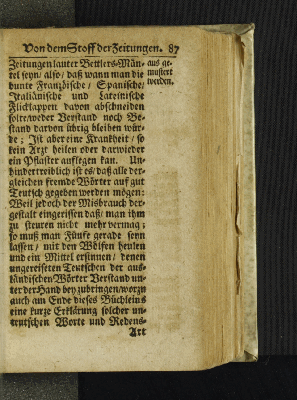 Von dem Stoff der Zeitungen. 87
Zeitungen lauter Bettlers-Män-
tel seyn/ also/ daß wann man die
bunte Französische/ Spanische/
Italiänische und Lateinische
Flicklappen davon abschneiden
solte/ weder Verstand noch Be-
stand darvon übrig bleiben wür-
de; Ist aber eine Kranckheit/ so
kein Artzt heilen oder darwieder
ein Pflaster auflegen kan. Un-
hindertreiblich ist es/ daß alle der-
gleichen fremde Wörter auf gut
Teutsch gegeben werden mögen:
Weil jedoch der Misbrauch der-
gestalt eingerissen daß/ man ihm
zu steuren nicht mehr vermag;
so muß man Fünfe gerade seyn
lassen/ mit den Wölfen heulen
und ein Mittel ersinnen/ denen
ungereiseten Teutschen der aus-
ländischen Wörter Verstand un-
ter der Hand bey zubringen/ worzu
auch am Ende dieses Büchleins
eine kurze Erklärung solcher un-
teutschen Worte und Redens-
Art
aus ge-
mustert
werden.